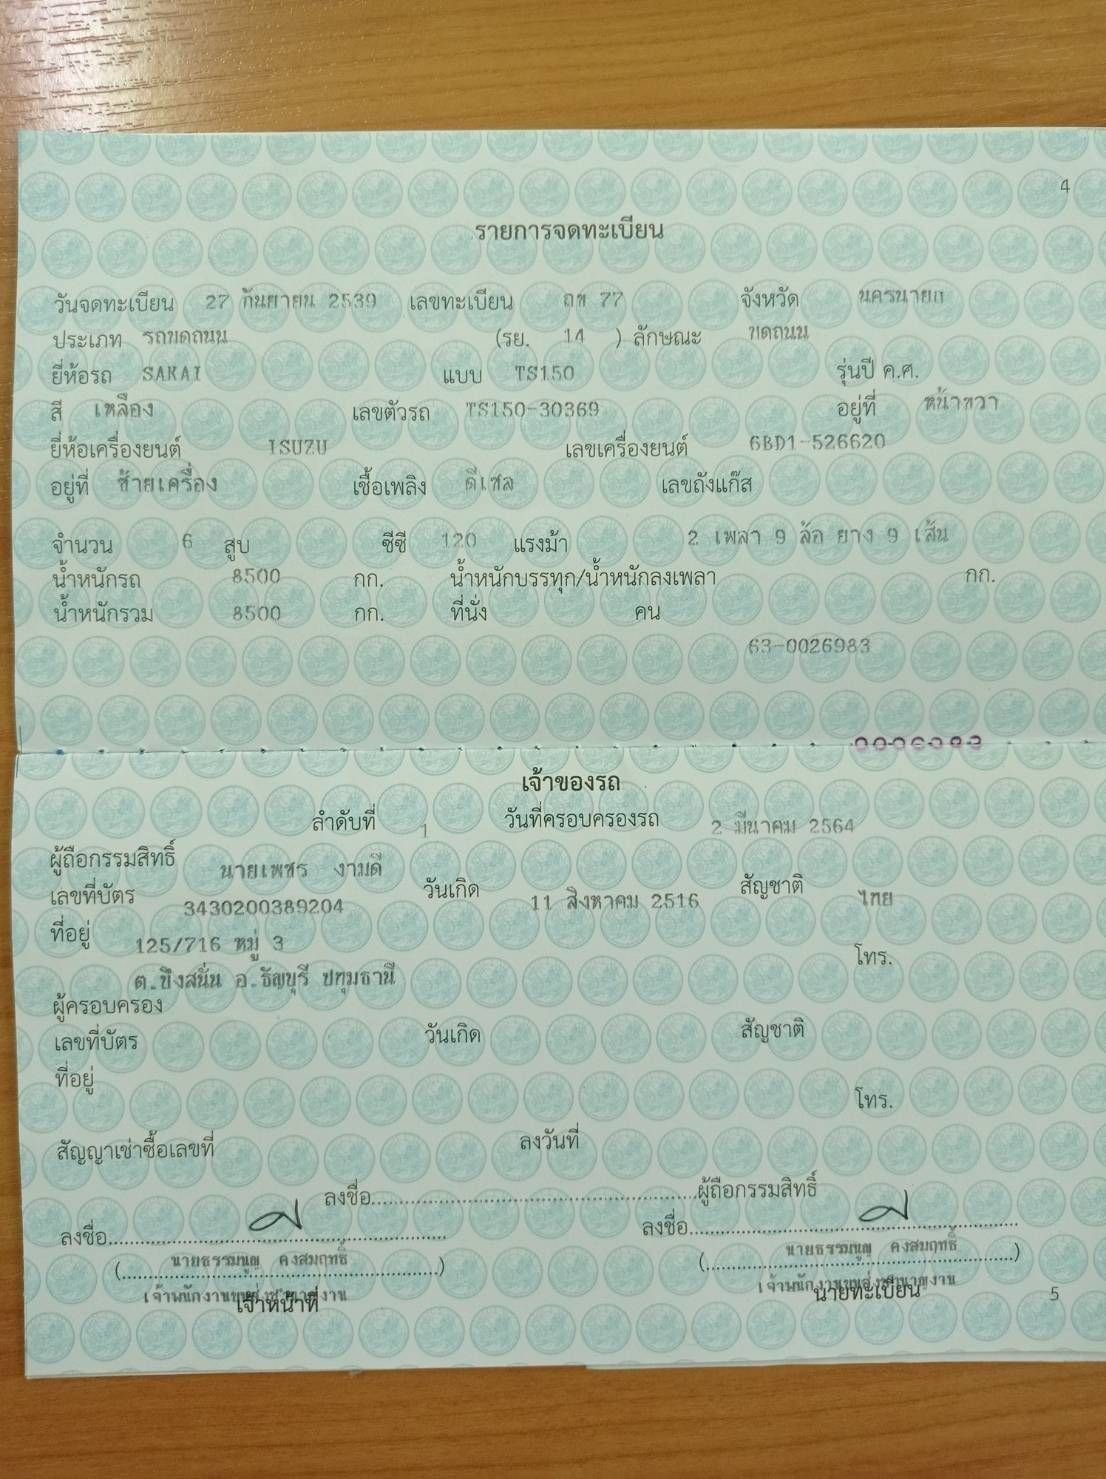 4
รายการจดทะเบียน
วันจดทะเบียน 27 กันยายน 2539 เลขทะเบียน ถข 77 จังหวัด นครนายก
ประเภท รถบดถนน (รย. 14 ) ลักษณะ บดถนน
ยี่ห้อรถ SAKAI แบบ TS150 รุ่นปี ค.ศ.
สี เหลือง เลขตัวรถ TS150-30369 อยู่ที่ หน้าขวา
ยี่ห้อเครื่องยนต์ ISUZU เลขเครื่องยนต์ 6BD1-526620
อยู่ที่ ซ้ายเครื่อง เชื้อเพลิง ดีเซล เลขถังแก๊ส
จำนวน 6 สูบ ซีซี 120 แรงม้า 2 เพลา 9 ล้อ ยาง 9 เส้น
น้ำหนักรถ 8500 กก. น้ำหนักบรรทุก/น้ำหนักลงเพลา กก.
น้ำหนักรวม 8500 กก. ที่นั่ง คน
63-0026983
เจ้าของรถ
ลำดับที่ 1 วันที่ครอบครองรถ 2 มีนาคม 2564
ผู้ถือกรรมสิทธิ์ นายเพชร งามดี
เลขที่บัตร 3430200389204 วันเกิด 11 สิงหาคม 2516 สัญชาติ ไทย
ที่อยู่ 125/716 หมู่ 3 โทร.
ต.บึงสนั่น อ.ธัญบุรี ปทุมธานี
ผู้ครอบครอง
เลขที่บัตร วันเกิด สัญชาติ
ที่อยู่ โทร.
สัญญาเช่าซื้อเลขที่ ลงวันที่
ลงชื่อ..........ผู้ถือกรรมสิทธิ์
ลงชื่อ.......... ลงชื่อ..........
(นายธรรมนูญ คงสมฤทธิ์) (นายธรรมนูญ คงสมฤทธิ์)
เจ้าพนักงานขนส่งชำนาญงาน เจ้าพนักงานขนส่งชำนาญงาน
เจ้าหน้าที่ นายทะเบียน
5